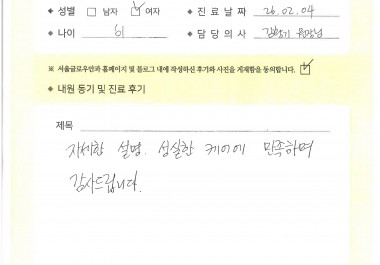 ◆ 성별 □ 남자 ☑ 여자 ◆ 진료날짜 26.02.04
◆ 나이 61 ◆ 담당의사 원장님
※ 서울글로우안과 홈페이지 및 블로그 내에 작성하신 후기와 사진을 게재함을 동의합니다. ☑
◆ 내원 동기 및 진료 후기
제목
자세한 설명. 성실한 케어에 만족하며
감사드립니다.